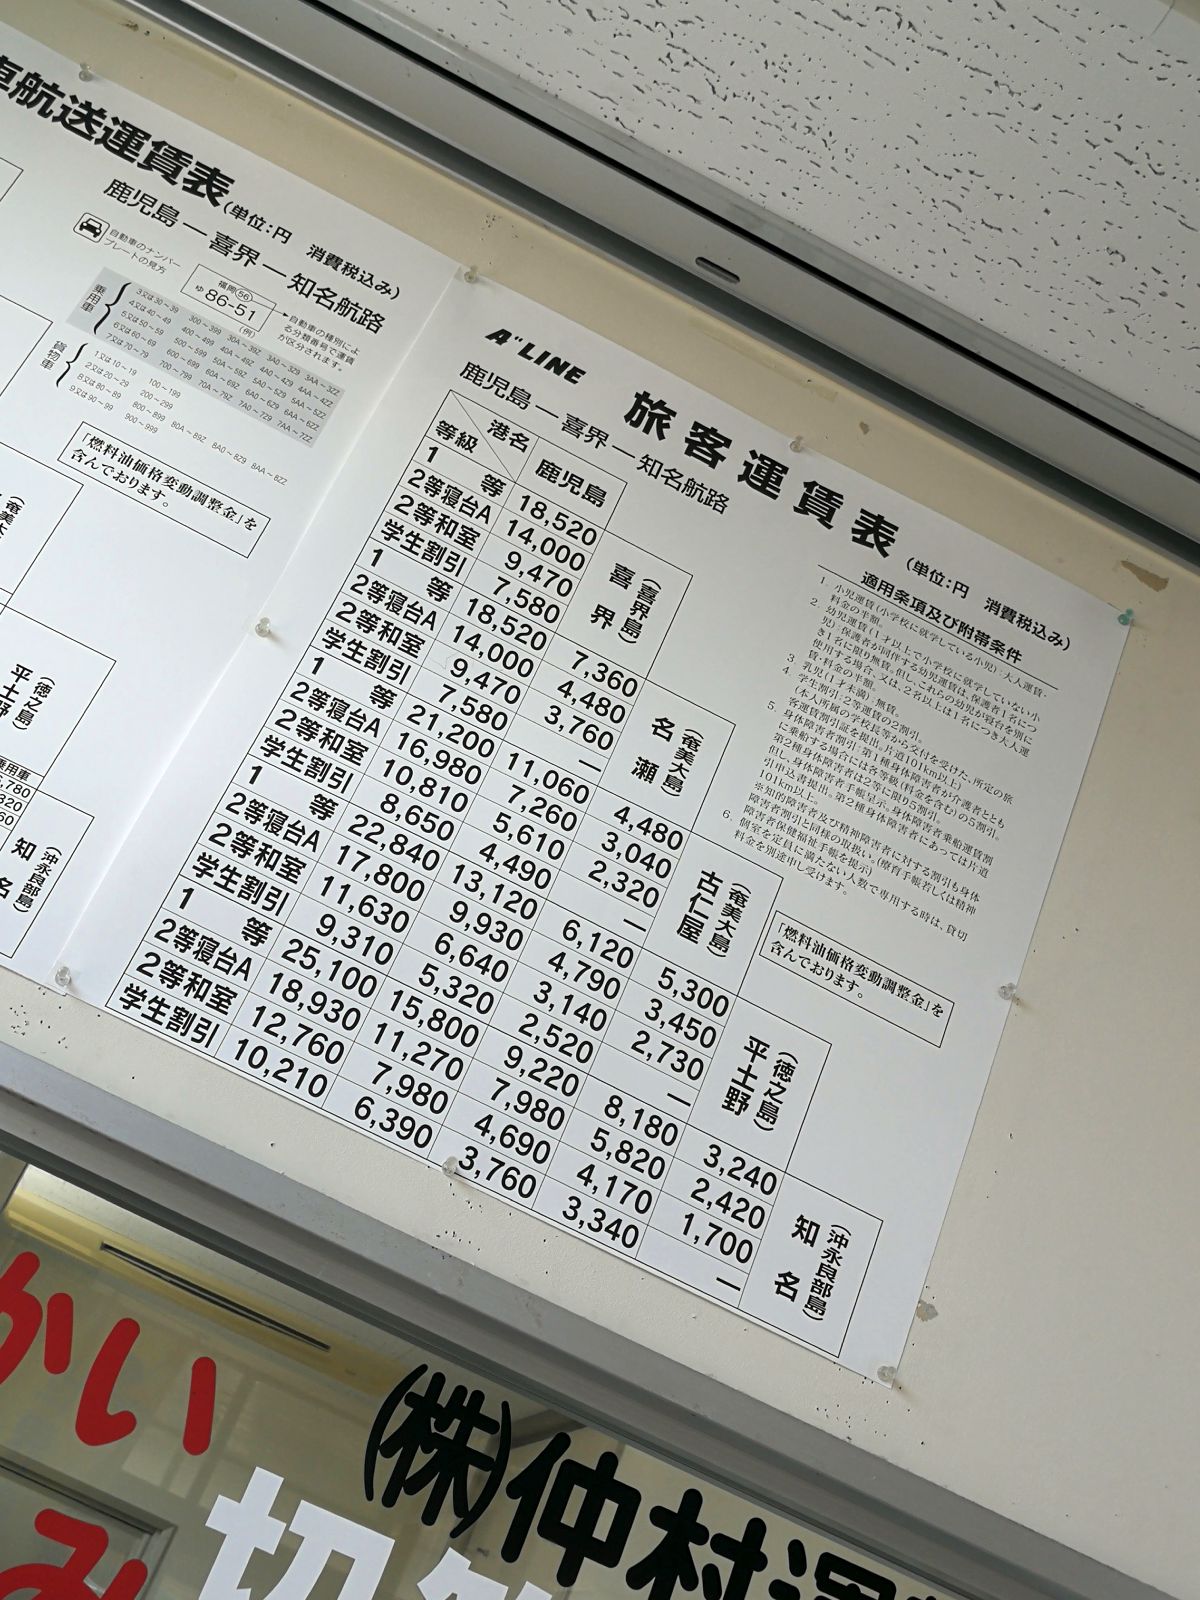 車航送運賃表(単位:円 消費税込み)
鹿児島 ― 喜界 ― 知名航路
自動車のナンバー
プレートの見方
福岡 56
ゆ 86-51
(例)
自動車の種別によ
る分類番号で運賃
が区分されます。
乗用車
3又は30~39 300~399 30A~39Z 3A0~3Z9 3AA~3ZZ
4又は40~49 400~499 40A~49Z 4A0~4Z9 4AA~4ZZ
5又は50~59 500~599 50A~59Z 5A0~5Z9 5AA~5ZZ
6又は60~69 600~699 60A~69Z 6A0~6Z9 6AA~6ZZ
7又は70~79 700~799 70A~79Z 7A0~7Z9 7AA~7ZZ
貨物車
1又は10~19 100~199
2又は20~29 200~299
8又は80~89 800~899 80A~89Z 8A0~8Z9 8AA~8ZZ
9又は90~99 900~999
「燃料油価格変動調整金」を
含んでおります。
(奄美大
(徳之島)
平土野
乗用車
知名
(沖永良部島)
A"LINE 旅客運賃表(単位:円 消費税込み)
鹿児島 ― 喜界 ― 知名航路
港名
等級
鹿児島
1等 18,520 喜界 (喜界島)
2等寝台A 14,000
2等和室 9,470
学生割引 7,580
1等 18,520 7,360 名瀬 (奄美大島)
2等寝台A 14,000 4,480
2等和室 9,470 3,760
学生割引 7,580 ―
1等 21,200 11,060 4,480 古仁屋 (奄美大島)
2等寝台A 16,980 7,260 3,040
2等和室 10,810 5,610 2,320
学生割引 8,650 4,490 ―
1等 22,840 13,120 6,120 5,300 平土野 (徳之島)
2等寝台A 17,800 9,930 4,790 3,450
2等和室 11,630 6,640 3,140 2,730
学生割引 9,310 5,320 2,520 ―
1等 25,100 15,800 9,220 8,180 3,240 知名 (沖永良部島)
2等寝台A 18,930 11,270 7,980 5,820 2,420
2等和室 12,760 7,980 4,690 4,170 1,700
学生割引 10,210 6,390 3,760 3,340 ―
適用条項及び附帯条件
1. 小児運賃(小学校に就学している小児):大人運賃・
料金の半額。
2. 幼児運賃(1才以上で小学校に就学していない小
児):保護者が同伴する幼児運賃は、保護者1名につ
き1名に限り無賃。但し、これらの幼児が寝台を別に
使用する場合、又は、2名以上は1名につき大人運
賃・料金の半額。
3. 乳児(1才未満):無賃。
4. 学生割引:2等運賃の2割引。
(本人所属の学校長等から交付を受けた、所定の旅
客運賃割引証を提出。片道101km以上)
5. 身体障害者割引:第1種身体障害者が介護者ととも
に乗船する場合には各等級(料金を含む)の5割引。
第2種身体障害者は2等に限り5割引。
但し、身体障害者手帳呈示、身体障害者乗船運賃割
引申込書提出。第2種身体障害者にあっては片道
101km以上。
※知的障害者及び精神障害者に対する割引も身体
障害者割引と同様の取扱い。(療育手帳若しくは精神
障害者保健福祉手帳を提示)
6. 個室を定員に満たない人数で専用する時は、貸切
料金を別途申し受けます。
「燃料油価格変動調整金」を
含んでおります。
かい
(株)仲村運
み 切符